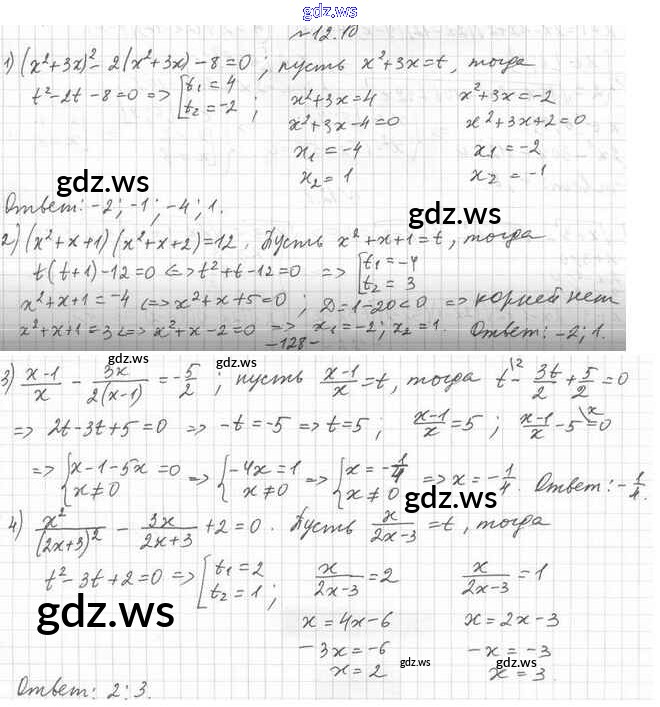 gdz.ws
№12.10
1) (x²+3x)²-2(x²+3x)-8=0; пусть x²+3x=t, тогда
t²-2t-8=0 => [t₁=4 t₂=-2; x²+3x=4 x²+3x=-2
x²+3x-4=0 x²+3x+2=0
x₁=-4 x₁=-2
x₂=1 x₂=-1
gdz.ws
Ответ: -2; -1; -4; 1.
gdz.ws
2) (x²+x+1)(x²+x+2)=12. Пусть x²+x+1=t, тогда
t(t+1)-12=0 <=> t²+t-12=0 => [t₁=-4 t₂=3
x²+x+1=-4 <=> x²+x+5=0; D=1-20<0 => корней нет
x²+x+1=3 <=> x²+x-2=0 => x₁=-2; x₂=1. Ответ: -2; 1.
-128-
gdz.ws gdz.ws
3) (x-1)/x - 3x/(2(x-1)) = -5/2; пусть (x-1)/x=t, тогда t\² - 3t/2 + 5/2 = 0
=> 2t-3t+5=0 => -t=-5 => t=5; (x-1)/x=5; (x-1)/x-5\ˣ=0
=> {x-1-5x=0 x≠0 => {-4x=1 x≠0 => {x=-1/4 x≠0 => x=-1/4. Ответ: -1/4.
gdz.ws
4) x²/(2x+3)² - 3x/(2x+3) + 2=0. Пусть x/(2x-3)=t, тогда
t²-3t+2=0 => [t₁=2 t₂=1; x/(2x-3)=2 x/(2x-3)=1
gdz.ws
x=4x-6 x=2x-3
-3x=-6 -x=-3
x=2 x=3
gdz.ws gdz.ws
Ответ: 2; 3.